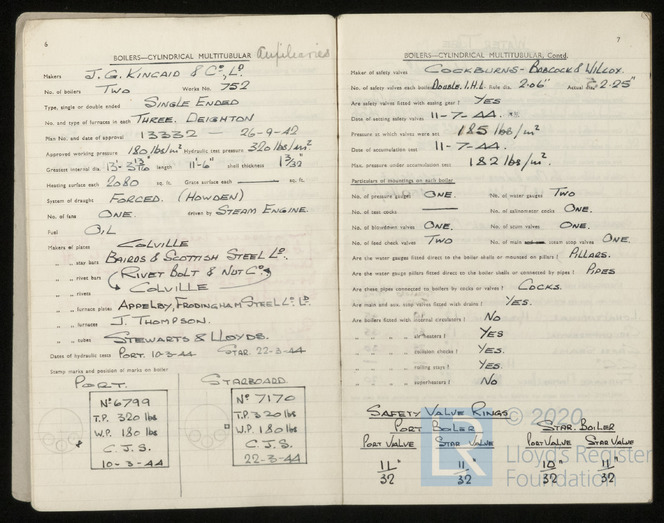 6
BOILERS—CYLINDRICAL MULTITUBULAR Auxiliaries
Makers J. G. KINCAID & Co. LD.
No. of boilers TWO Works No. 752
Type, single or double ended SINGLE ENDED
No. and type of furnaces in each THREE. DEIGHTON
Plan No. and date of approval 13332 — 26-9-42
Approved working pressure 180 lbs/in². Hydraulic test pressure 320 lbs/in².
Greatest internal dia. length 11'-6" shell thickness
Heating surface each 2080 sq. ft. Grate surface each — sq. ft.
System of draught FORCED. (HOWDEN)
No. of fans ONE. driven by STEAM ENGINE.
Fuel OIL
Makers of plates COLVILLE
" " stay bars BAIRDS & SCOTTISH STEEL LD.
" " rivet bars RIVET BOLT & NUT Co
" " rivets COLVILLE
" " furnace plates APPELBY, FRODINGHAM STEEL Co. LD.
" " furnaces J. THOMPSON.
" " tubes STEWARTS & LLOYDS.
Dates of hydraulic tests PORT. 10-3-44 STAR. 22-3-44
Stamp marks and position of marks on boiler
PORT.
No 6799
T.P. 320 lbs
W.P. 180 lbs
C.J.S.
10-3-44
STARBOARD.
No 7170
T.P. 320 lbs
W.P. 180 lbs
C.J.S.
22-3-44
7
BOILERS—CYLINDRICAL MULTITUBULAR, Contd.
Maker of safety valves COCKBURNS- BABCOCK & WILCOX.
No. of safety valves each boiler DOUBLE. I.H.L. Rule dia. 2.06" Actual 2.25"
Are safety valves fitted with easing gear? YES
Date of setting safety valves 11-7-44.
Pressure at which valves were set 185 lbs/in².
Date of accumulation test 11-7-44.
Max. pressure under accumulation test 182 lbs/in².
Particulars of mountings on each boiler
No. of pressure gauges ONE. No. of water gauges TWO
No. of test cocks — No. of salinometer cocks ONE.
No. of blowdown valves ONE. No. of scum valves ONE.
No. of feed check valves TWO No. of main steam stop valves ONE.
Are the water gauges fitted direct to the boiler shells or mounted on pillars? PILLARS.
Are the water gauge pillars fitted direct to the boiler shells or connected by pipes? PIPES
Are these pipes connected to boilers by cocks or valves? COCKS.
Are main and aux. stop valves fitted with drains? YES.
Are boilers fitted with internal circulators? NO
" " " " air heaters? YES
" " " " collision chocks? YES.
" " " " rolling stays? YES.
" " " " superheaters? NO
SAFETY VALVE RINGS
PORT BOILER STAR. BOILER
PORT VALVE STAR VALVE PORT VALVE STAR VALVE
11/32" 11/32" 10/32" 11/32"
© 2020
Lloyd's Register
Foundation